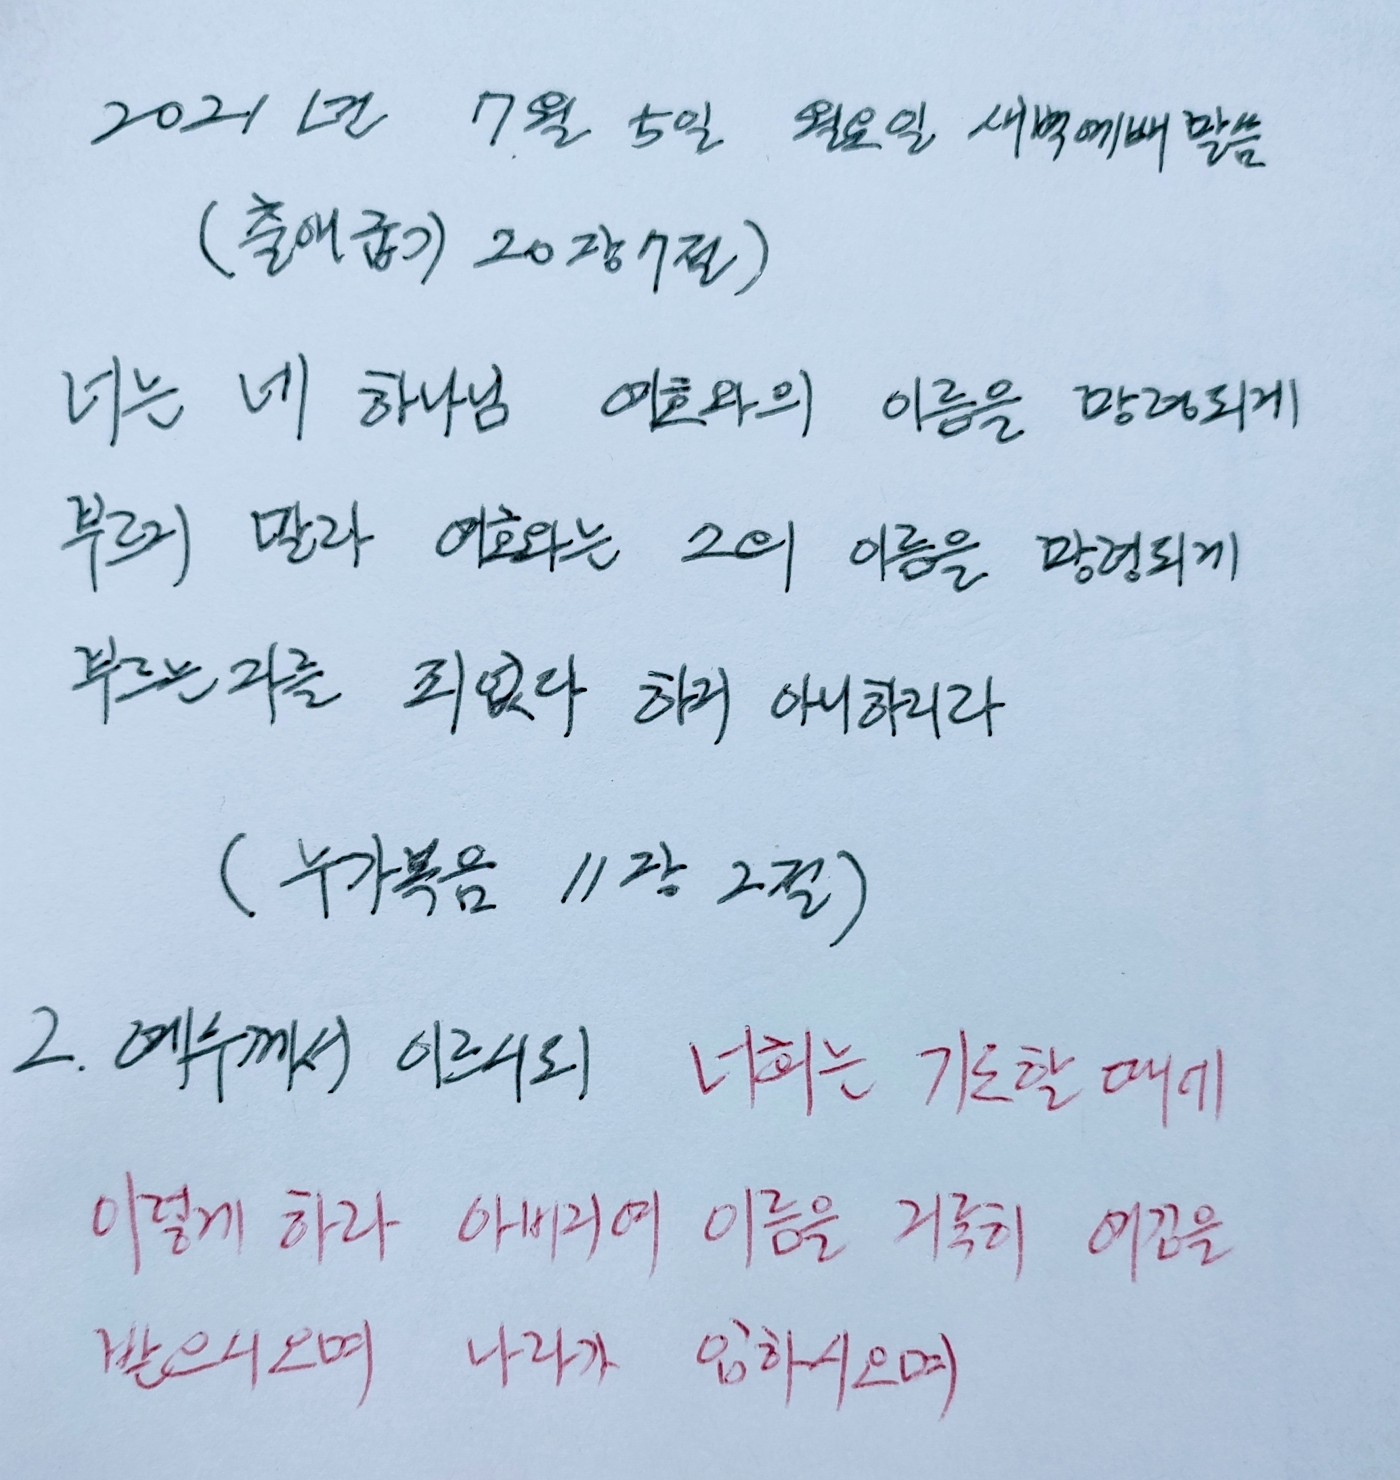 2021년 7월 5일 월요일 새벽예배말씀
(출애굽기 20장 7절)
너는 네 하나님 여호와의 이름을 망령되게
부르지 말라 여호와는 그의 이름을 망령되게
부르는 자를 죄없다 하지 아니하리라
(누가복음 11장 2절)
2. 예수께서 이르시되 너희는 기도할 때에
이렇게 하라 아버지여 이름을 거룩히 여김을
받으시오며 나라가 임하시오며